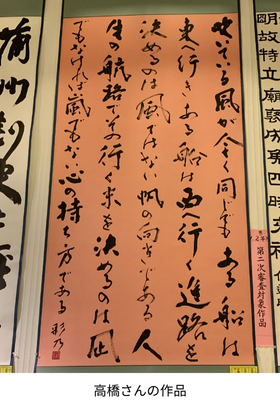 吹いている風が全く同じでもある船は
東へ行きある船は西へ行く進路を
決めるのは風ではない帆の向きである人
生の航路でその行く末を決めるのは凪
でもなければ嵐でもない心の持ち方である 彩乃
第二次審査対象作品
高橋さんの作品